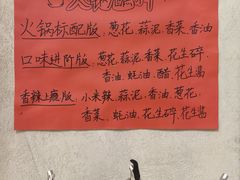 火锅标配版、葱花、蒜泥、香菜、香油
口味进阶版、葱花、蒜泥、香菜、花生碎、
香油、蚝油、醋、花生酱
香辣上瘾版、小米辣、蒜泥、香油、葱花、
香菜、蚝油、花生碎、花生酱